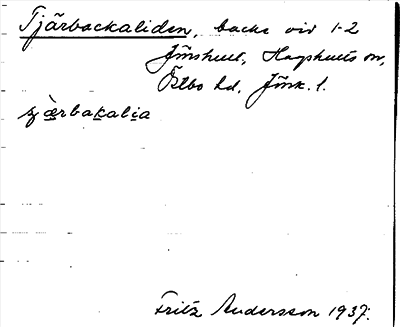 Tjärbackaliden, backe vid 1-2
Jönshult, Hagshults sn,
Östbo hd, Jönk. l.
Fritz Andersson 1937.